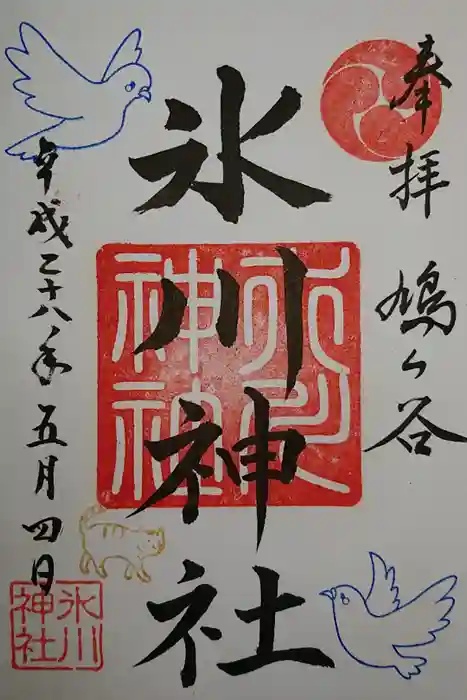 奉拝
鳩ヶ谷
氷川神社
氷川神社
平成二十八年五月四日
氷川神社